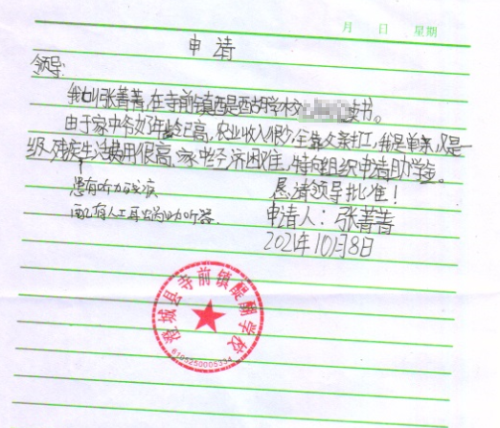 月 日 星期
申请
领导:
我叫张菁菁,在寺前镇醍醐学校 读书。
由于家中爷奶年龄已高,农业收入很少,全靠父亲打工,我是单亲,又是
级残疾生活费用很高,家中经济困难,特向组织申请助学金。
患有听力残疾
恳请领导批准!
配有人工耳蜗助听器
申请人:张菁菁
2021年10月8日
澄城县寺前镇醍醐学校
6105250005334